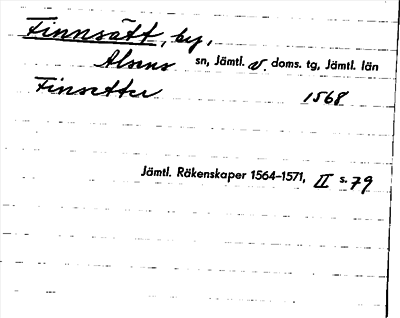 Finnsätt, by,
Alsens sn, Jämtl. v. doms. tg, Jämtl. län
Finsetter 1568
Jämtl. Räkenskaper 1564-1571, II s. 79